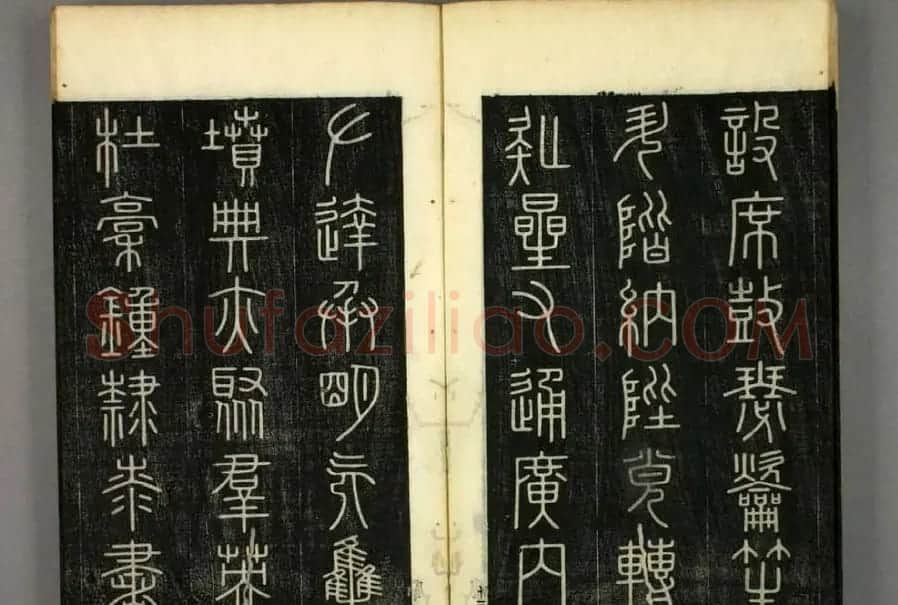 設席鼓瑟龡笙
升階納陛弁轉
疑星右通廣內
左達承明既集
墳典亦聚羣英
杜稾鍾隸漆書
Shufaziliao.COM